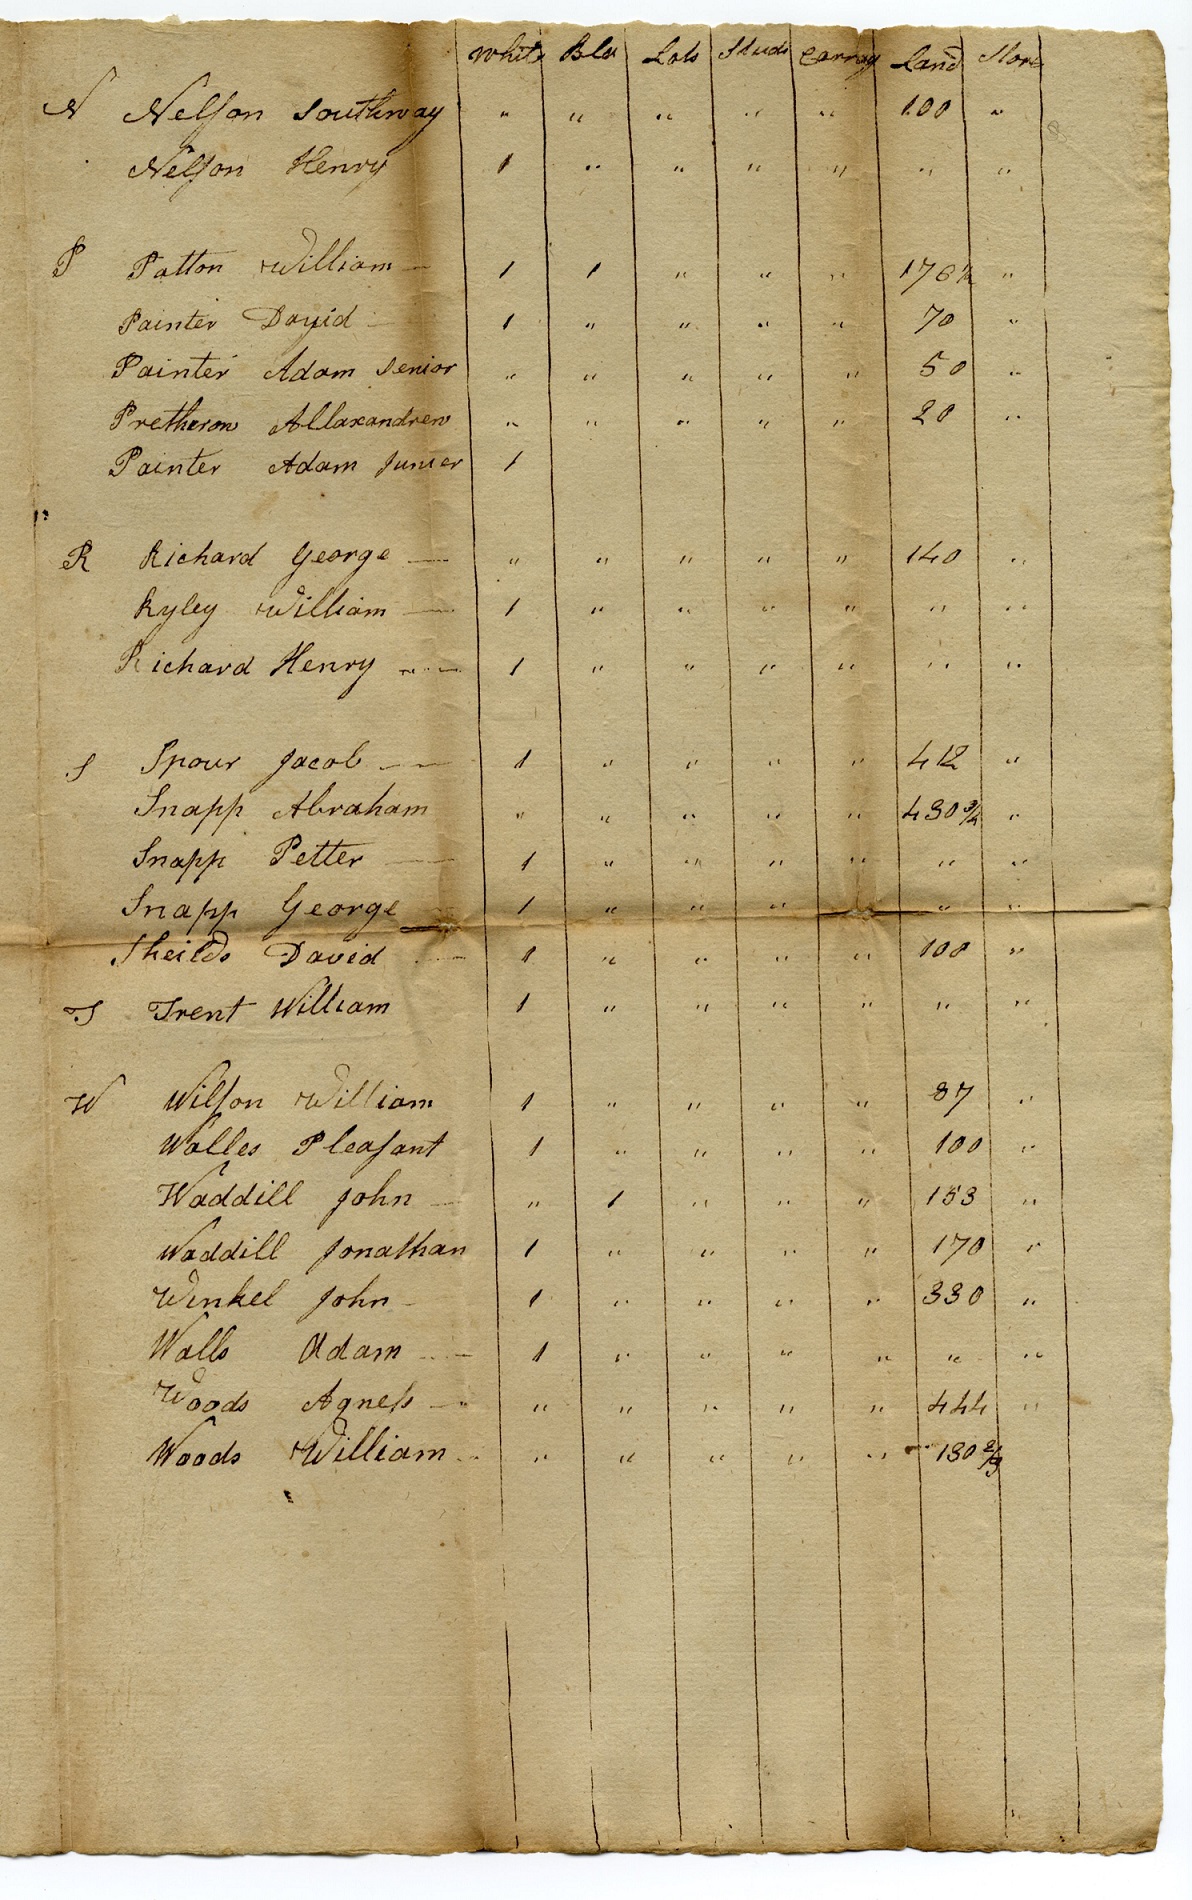 White Bla Lots Studs Carray Land Store
N Nelson Southway " " " " " 100 "
Nelson Henry 1 " " " " " "
P Patton William 1 1 " " " 176 1/2 "
Painter David 1 " " " " 70 "
Painter Adam Senior " " " " " 50 "
Pretherow Allaxandrew " " " " " 20 "
Painter Adam Junier 1
R Richard George " " " " " 140 "
Ryley William 1 " " " " " "
Richard Henry 1 " " " " " "
S Spour Jacob 1 " " " " 412 "
Snapp Abraham " " " " " 430 3/4 "
Snapp Petter 1 " " " " " "
Snapp George 1 " " " " " "
Sheilds David 1 " " " " 100 "
T Trent William 1 " " " " " "
W Wilson William 1 " " " " 87 "
Walles Pleasant 1 " " " " 100 "
Waddill John " 1 " " " 153 "
Waddill Jonathan 1 " " " " 170 "
Winkel John 1 " " " " 330 "
Walls Adam 1 " " " " " "
Woods Agness " " " " " 444 "
Woods William " " " " " 130 2/3